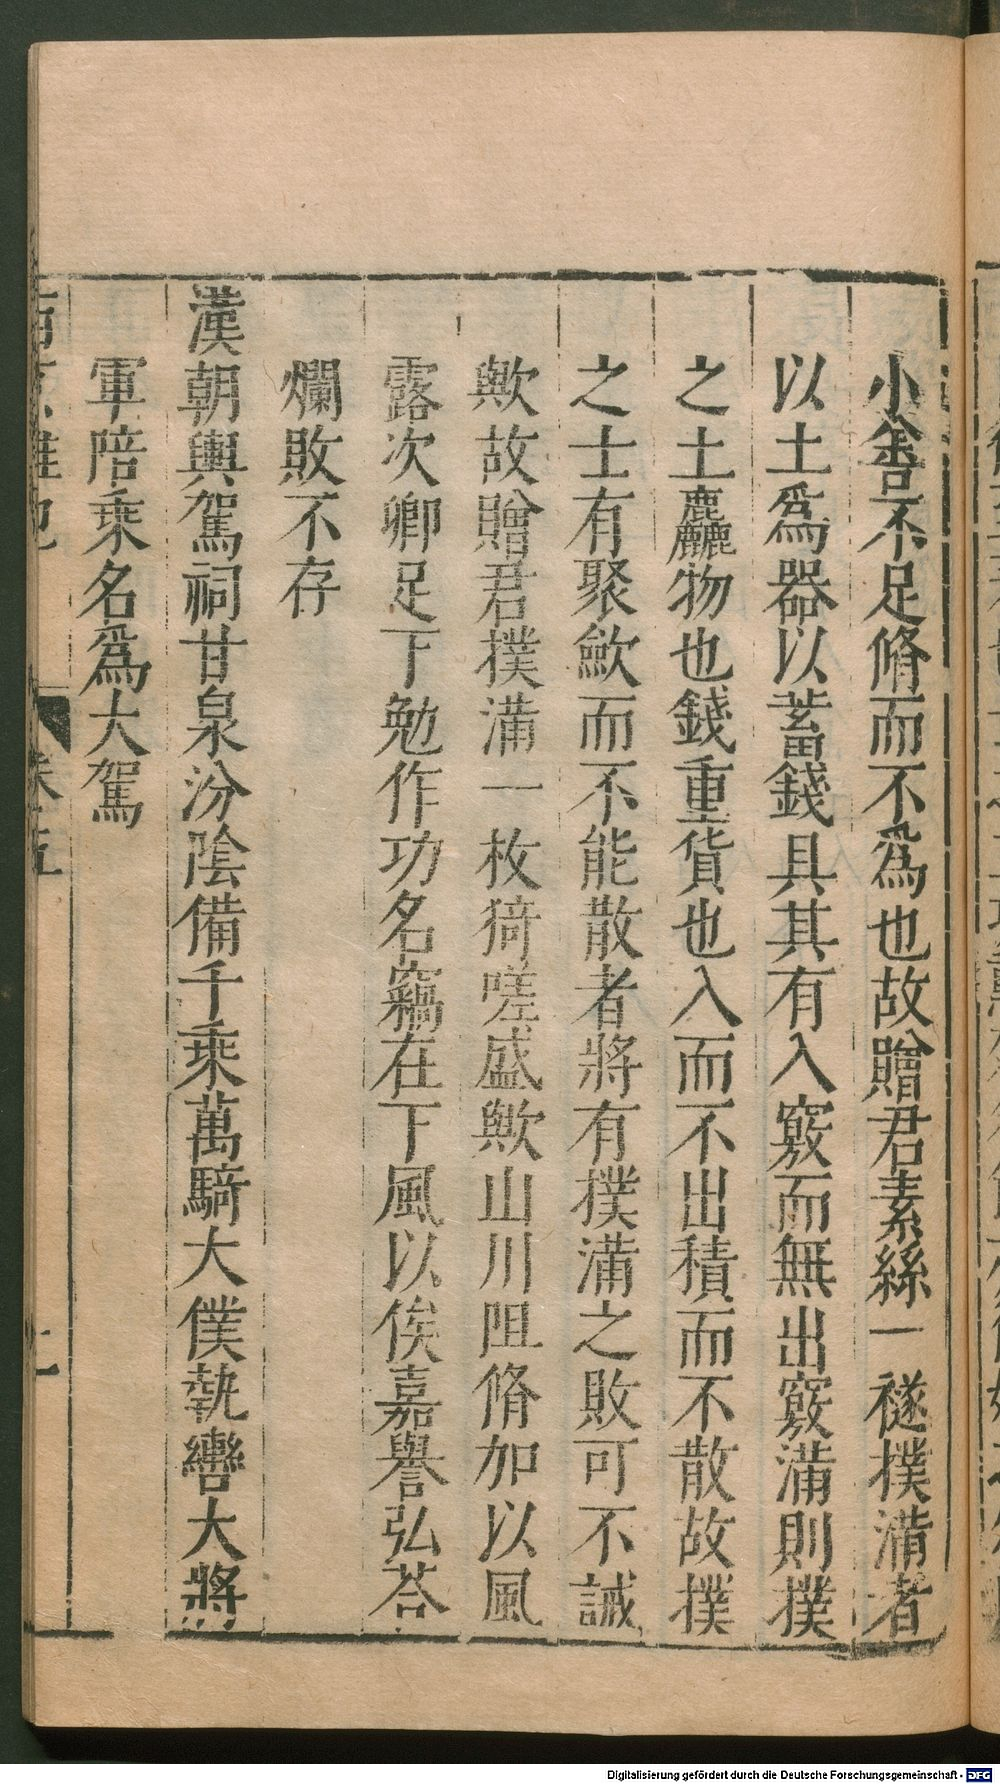 小善不足脩而不爲也故贈君素絲一襚撲滿者
以土爲器以蓄錢具其有入竅而無出竅滿則撲
之土麤物也錢重貨也入而不出積而不散故撲
之士有聚歛而不能散者將有撲滿之敗可不誡
歟故贈君撲滿一枚猗嗟盛歟山川阻脩加以風
露次卿足下勉作功名竊在下風以俟嘉譽弘荅
爛敗不存
漢朝輿駕祠甘泉汾陰備千乘萬騎大僕執轡大將
軍陪乘名爲大駕
卷五
Digitalisierung gefördert durch die Deutsche Forschungsgemeinschaft - DFG